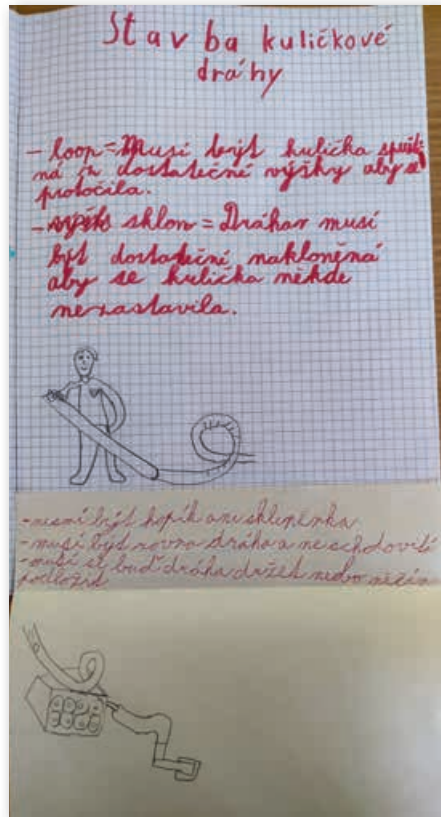 Stavba kuličkové
dráhy
- loop = Musí být kulička spuště
ná z dostatečné výšky aby se
protočila.
- sklon = Dráha musí
být dostateční nakloněná
aby se kulička někde
nezastavila.
- nesmí být hopík ani skleněnka
- musí být rovna dráha a ne schodovití
- musí se buď dráha držet nebo něčím
podložit